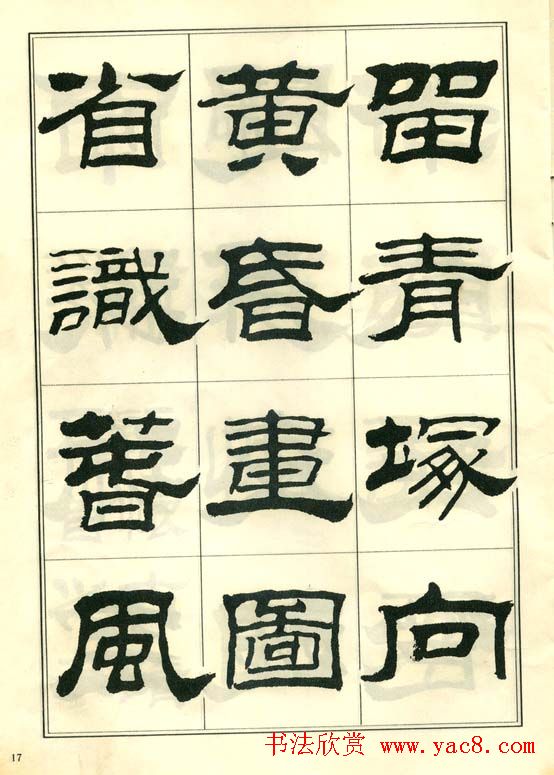 留青塚向
黃昏畫圖
省識春風
17
书法欣赏 www.yac8.com